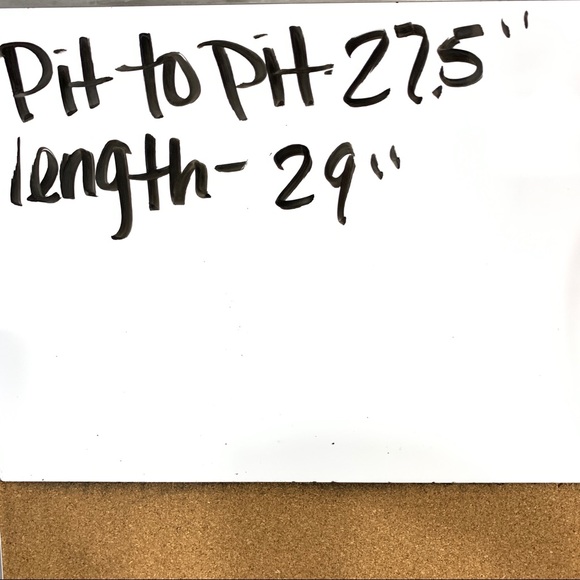 Pit to Pit - 27.5"
length - 29"